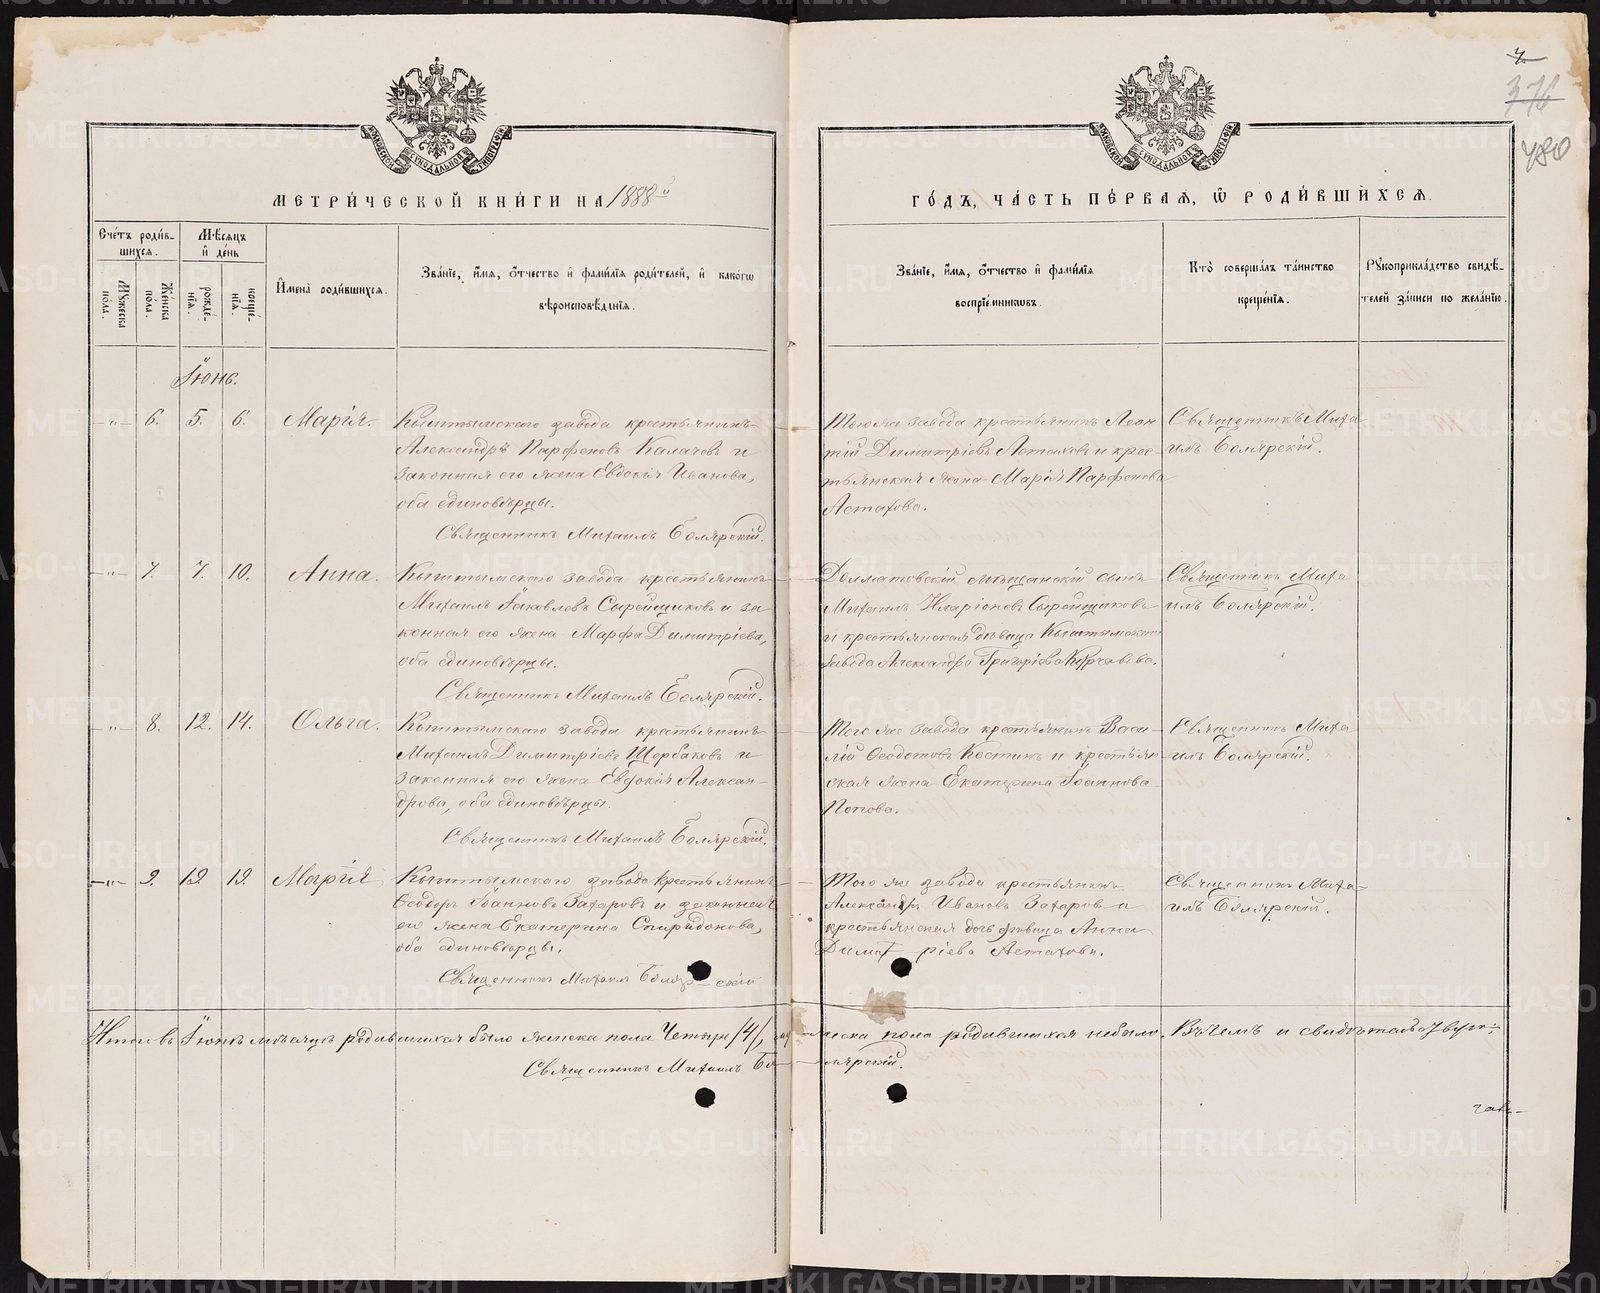 7.
376
480
МЕТРИ́ЧЕСКОЙ КНИ́ГИ НА 1888й
ГО́ДЪ, ЧА́СТЬ ПЕ́РВАЯ, Ѡ РОДИ́ВШИХСЯ.
Сче́тъ роди́в-
шихся.
Мꙋжеска
пола.
Же́нска
по́ла.
Мѣсяцъ
и҆ де́нь
рожде́-
нїѧ.
креще́-
нїѧ.
И҆мена̀ роди́вшихся.
Зва́нїе, и҆́мѧ, ѻ҆́тчество и҆ фами́лїѧ роди́телей, и҆ како́гѡ
вѣроисповѣ́данїѧ.
Зва́нїе, и҆́мѧ, ѻ҆́тчество и҆ фами́лїѧ
воспрїе́мникѡвъ.
Кто̀ соверша́лъ та́инство
креще́нїѧ.
Рꙋкоприкла́дство свидѣ́-
телей за́писи по жела́нїю.
Іюнь.
-"- 6. 5. 6. Марія.
Кыштымскаго завода крестьянинъ
Александръ Парфеновъ Калачевъ и
законная его жена Евдокія Иванова,
оба единовѣрцы.
Священникъ Михаилъ Боярскій.
Того же завода крестьянинъ Леон
тій Димитріевъ Астаховъ и крес-
тьянская жена Марія Парфенова
Астахова.
Священникъ Миха
илъ Боярскій.
-"- 7. 7. 10. Анна.
Кыштымскаго завода крестьянинъ
Михаилъ Іаковлевъ Сырейщиковъ и за
конная его жена Марфа Димитріева,
оба единовѣрцы.
Священникъ Михаилъ Боярскій.
Долматовскій мѣщанскій сынъ
Михаилъ Иларіоновъ Сырейщиковъ
и крестьянская дѣвица Кыштымскаго
завода Александра Григоріева
Священникъ Миха
илъ Боярскій.
-"- 8. 12. 14. Ольга.
Кыштымскаго завода крестьянинъ
Михаилъ Димитріевъ Щербаковъ и
законная его жена Евдокія Алексан-
дрова, оба единовѣрцы.
Священникъ Михаилъ Боярскій.
Того же завода крестьянинъ Васи
лій Ѳеодотовъ Костинъ и крестьян
ская жена Екатерина Іоаннова
Попова.
Священникъ Миха
илъ Боярскій.
-"- 9. 19. 19. Марія
Кыштымскаго завода крестьянинъ
Ѳеодоръ Іоанновъ Захаровъ и законная
его жена Екатерина Спиридонова,
оба единовѣрцы.
Священникъ Михаилъ Боярскій
Того же завода крестьянинъ
Александръ Ивановъ Захаровъ и
крестьянская дочь дѣвица Анна
Димитріева Астахова.
Священникъ Миха-
илъ Боярскій.
Итого въ Іюнѣ мѣсяцѣ родившихся было женска пола Четыре /4/, мужеска пола родившихся небыло. Въ чемъ и свидѣтельствую:
Священникъ Михаилъ Боярскій.